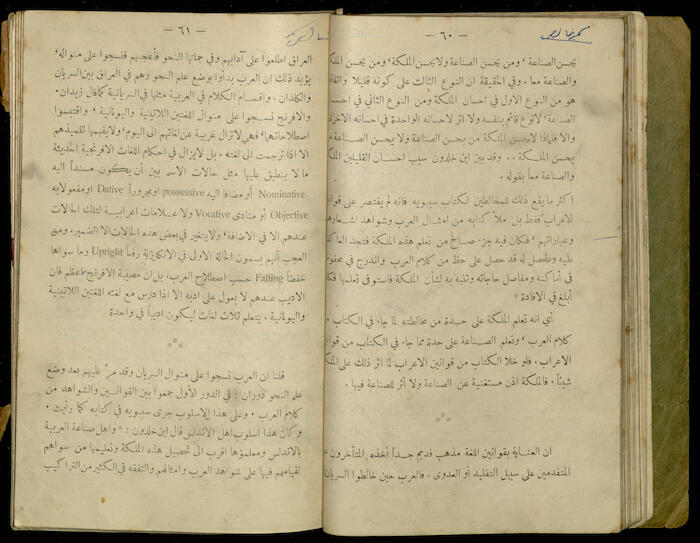 — ٦٠ —
يحسن الصناعة ' ومن يحسن الصناعة ولا يحسن الملكة' ومن يحسن
والصناعة معاً . وفي الحقيقة ان النوع الثالث على كونه قليلا
هو من النوع الاول في احسان الملكة ومن النوع الثاني في
الصناعة' لا نوع قائم بنفسه ولا اثر لاحسانه الواحدة في احسانه
والا فلماذا لا يحسن الملكة من يحسن الصناعة ولا يحسن الصناعة
يحسن الملكة . . وقد بين ابن خلدون سبب احسان القليلين
والصناعة معاً بقوله .
اكثر ما يقع ذلك للمخالطين لكتاب سيبويه فانه لم يقتصر على
الاعراب فقط بل ملأ كتابه من امثال العرب وشواهد
وعباراتهم ' فكان فيه جزء صالح من تعلم هذه الملكة فتجد
عليه والمحصل له قد حصل على حظ من كلام العرب واندرج في
في أماكنه ومفاصل حاجاته وتنبه به لشأن الملكة فاستوفى تعليمها
أبلغ في الافادة »
أي انه تعلم الملكة على حدة من مخالطته لما جاء في الكتاب
كلام للعرب ' وتعلم الصناعة على حدة مما جاء في الكتاب من
الاعراب . فلو خلا الكتاب من قوانين الاعراب لما اثر ذلك على
شيئاً . فالملكة اذن مستغنية عن الصناعة ولا أثر للصناعة فيها .
* * *
ان العناية بقوانين اللغة مذهب قديم جداً أخذه المتأخرون
المتقدمين على سبيل التقليد أو العدوى . فالعرب حين خالطوا السريان
— ٦١ —
العراق اطلعوا على آدابهم وفي جملتها النحو فأعجبهم فنسجوا على منواله'
يؤيد ذلك ان العرب بدأوا بوضع علم النحو وهم في العراق بين السريان
والكلدان . واقسام الكلام في العربية مثلها في السريانية كما قال زيدان .
والافرنج نسجوا على منوال اللغتين اللاتينية واليونانية ' واقتبسوا
اصطلاحاتهما' فهي لا تزال غريبة عن لغاتهم الى اليوم' ولا يفهمها تلميذهم
الا اذا ترجمت الى لغته . بل لا يزال في احكام اللغات الافرنجية الحديثة
ما لا ينطبق عليها مثل حالات الاسم بين ان يكون مسنداً اليه
Nominative او مضافا اليه possessive او مجروراً Dative او مفعولا به
Objective أو منادى Vocative ولا علامات اعرابية لتلك الحالات
عندهم الا في الاضافة' ولا يتغير في بعض هذه الحالات الا الضمير' ومن
العجب أنهم يسمون الحالة الاولى في الانكليزية رفعاً Upright وما سواها
خفضاً Falling حسب اصطلاح العرب' بل ان مصيبة الافرنج بهما عظم فان
الاديب عندهم لا يعول على ادبه الا اذا درس مع لغته اللغتين اللاتينية
واليونانية . يتعلم ثلاث لغات ليكون أديباً في واحدة
* * *
قلنا ان العرب نسجوا على منوال السريان وقد مرّ عليهم بعد وضع
علم النحو دوران : في الدور الأول جمعوا بين القوانين والشواهد من
كلام العرب . وعلى هذا الاسلوب جرى سيبويه في كتابه كما رأيت .
وكان هذا أسلوب اهل الاندلس قال ابن خلدون : « واهل صناعة العربية
بالاندلس ومعلموها اقرب الى تحصيل هذه الملكة وتعليمها من سواهم
لقيامهم فيها على شواهد العرب وامثالهم والتفقه في الكثير من التراكيب